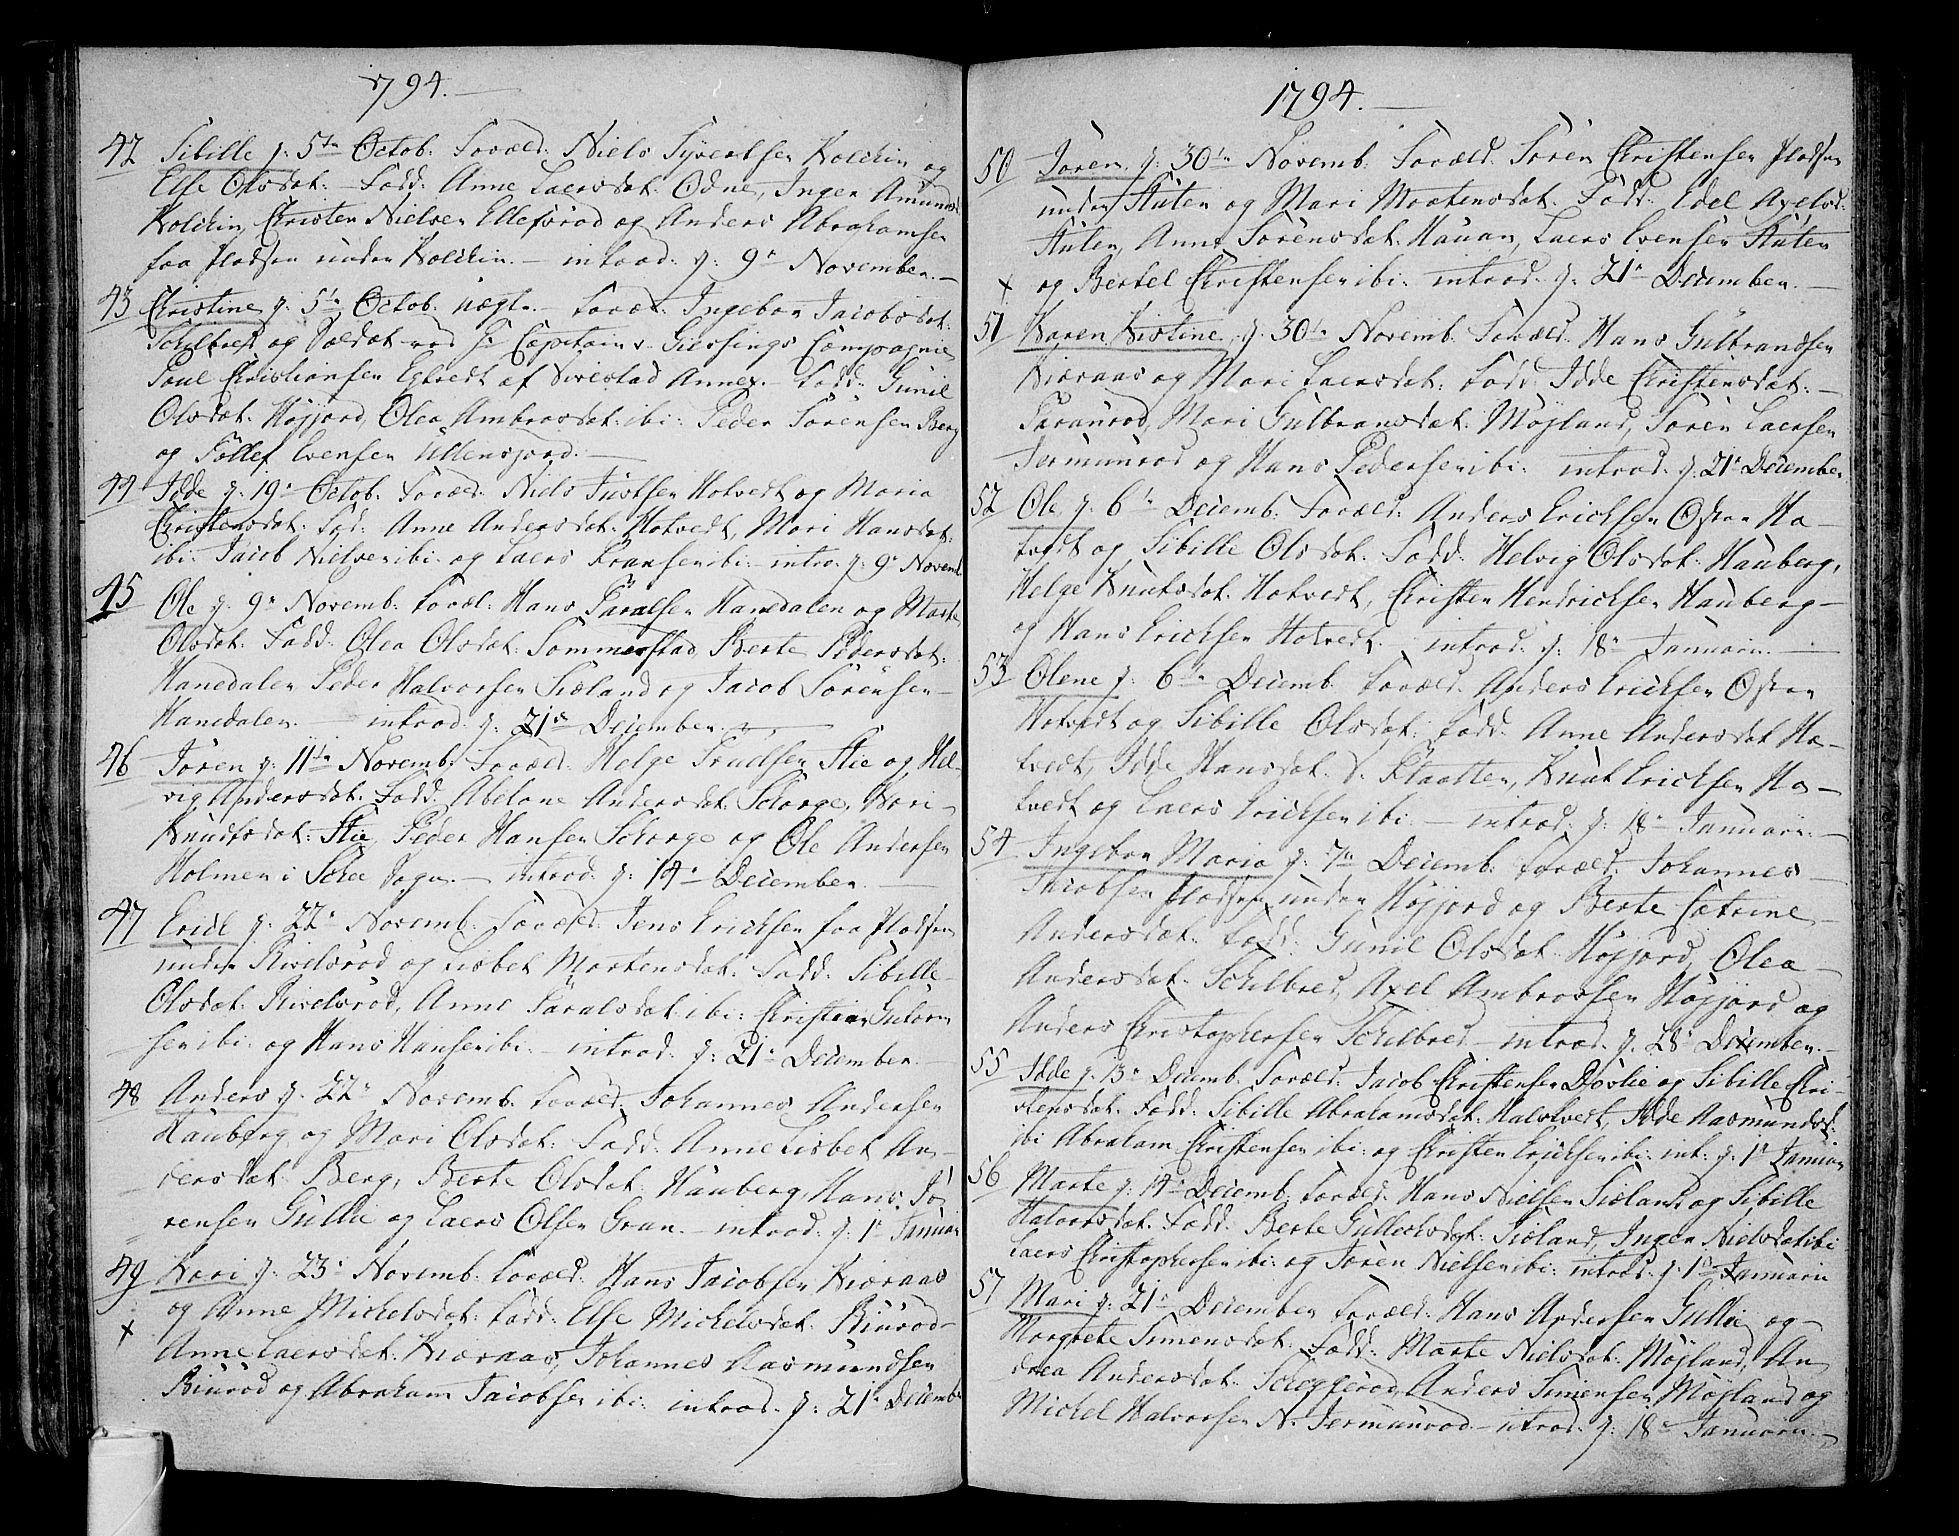 1794.
42 Sibille g: 5te Octob: Foræld: Niels Syvertsen Kolkin og
Else Olsdat: Fadd: Anne Laersdat: Odne, Inger Amunds
Kolkin, Christen Nielsen Ellefsrød og Anders Abrahamsen
paa Pladsen under Kolkin. introd: g: 9n November.
43 Christine g: 5te Octob: Foræ: Ingebor Jacobsdat:
Schilbred og Soldat ved Hr Capitaine Giessings Compagnie
Poul Christiansen af Annex. Fadd: Gunil
Olsdat: Høijord, Olea Ambrosdat: ibi: Peder Sørensen Berg
og Tollef Evensen
44 Idde g: 19n Octob: Foræld: Niels Justsen Hotvedt og Maria
Christensdat: Fad: Anne Andersdat: Hotvedt, Mari Hansdat:
ibi: Jacob Nielsen ibi: og Laers Fransen ibi: intro: g: 9n Novemb
45 Ole g: 9n Novemb: Foræl: Hans Paralsen Hanedalen og Marte
Olsdat: Fadd: Olea Olsdat: Sommerstad, Berte Pedersdat:
Hanedalen Peder Halvorsen Siæland og Jacob Sørensen
Hanedalen. introd: g: 21n December.
46 Søren g: 11te Novemb: Foræld: Helge Trulsen Stie og Hel-
vig Andersdat: Fadd: Abelone Andersdat: Schorge, Kari
Knudsdat: Stie, Peder Hansen Schorge og Ole Andersen
Holmen i Sogn. introd: g: 14n December.
47 Erich g: 22n Novemb: Foræld: Jens Ericksen paa Pladsen
under Rivelsrød og Lisbet Mortensdat: Fadd: Sibille
Olsdat: Rivelsrød, Anne Paralsdat: ibi: Christian
sen ibi: og Hans Hansen ibi: introd: g: 21n December.
48 Anders g: 22n Novemb: Foræld: Johannes Andersen
Hauberg og Mari Olsdat: Fadd: Anne Lisbet An-
dersdat: Berg, Berte Olsdat: Hauberg, Hans Sø-
rensen Gullie og Laers Olsen Gran. introd: g: 1n Januari
49 Kari g: 23n Novemb: Foræld: Hans Jacobsen Kiæraas
og Anne Michelsdat: Fadd: Else Michelsdat: Biurød
x Anne Laersdat: Kiæraas, Johannes Aasmundsen
Biurød og Abraham Jacobsen ibi: introd: g: 21n Decemb
1794.
50 Søren g: 30te Novemb: Foræld: Søren Christensen Pladsen
under Stulen og Mari Mortensdat: Fadd: Edel Axelsd:
Stulen, Anne Sørensdat: Hauan, Laers Evensen Stulen
x og Bertel Christensen ibi: introd: g: 21n December.
51 Karen Kistine g: 30te Novemb: Foræld: Hans Gulbrandsen
Kiæraas og Mari Laersdat: Fadd: Idde Christensdat:
Paaurød, Mari Gulbransdat: Møyland, Søren Laersen
Jermunrød og Hans Pedersen ibi: introd: g: 21n December
52 Ole g: 6te Decemb: Foræld: Anders Ericksen Østen Ho-
tvedt og Sibille Olsdat: Fadd: Helvig Olsdat: Hauberg,
Helge Knutsdat: Hotvedt, Christen Hendricksen Hauberg
og Hans Ericksen Hotvedt. introd: g: 18n Januarii.
53 Olene g: 6te Decemb: Foræld: Anders Ericksen Østen
Hotvedt og Sibille Olsdat: Fadd: Anne Andersdat Ho-
tvedt, Idde Hansdat: S: Klaatten, Knut Ericksen Ho-
tvedt og Laers Ericksen ibi: introd: g: 18n Januarii.
54 Ingebor Maria g: 7n Decemb: Foræld: Johannes
Jacobsen Pladsen under Høijord og Berte Catrine
Andersdat: Fadd: Gunil Olsdat: Høijord, Olea
Andersdat: Schilbred, Axel Ambrosen Høijord og
Anders Christophersen Schilbred. introd: g: 28n December.
55 Idde g: 13n Decemb: Foræld: Jacob Christensen Døvlie og Sibille Chri-
stensdat: Fadd: Sibille Abrahamsdat: Halvetvedt, Idde Aasmundsd:
ibi Abraham Christensen ibi: og Christen Ericksen ibi: int: g: 1n Januari
56 Marte g: 14n Decemb: Foræld: Hans Nielsen Siæland og Sibille
Halvorsdat: Fadd: Berte Gullecksdat: Siæland, Inger Nielsdat ibi:
Laers Christophersen ibi: og Søren Nielsen ibi: introd: g: 1n Januarii
57 Mari g: 21n December Foræld: Hans Andersen Gullie og
Margrete Simensdat: Fadd: Marte Nielsdat: Møyland, An
drea Andersdat: Scheggerød, Anders Simensen Møyland og
Michel Halvorsen N: Jermunrød. introd: g: 18n Januarii.